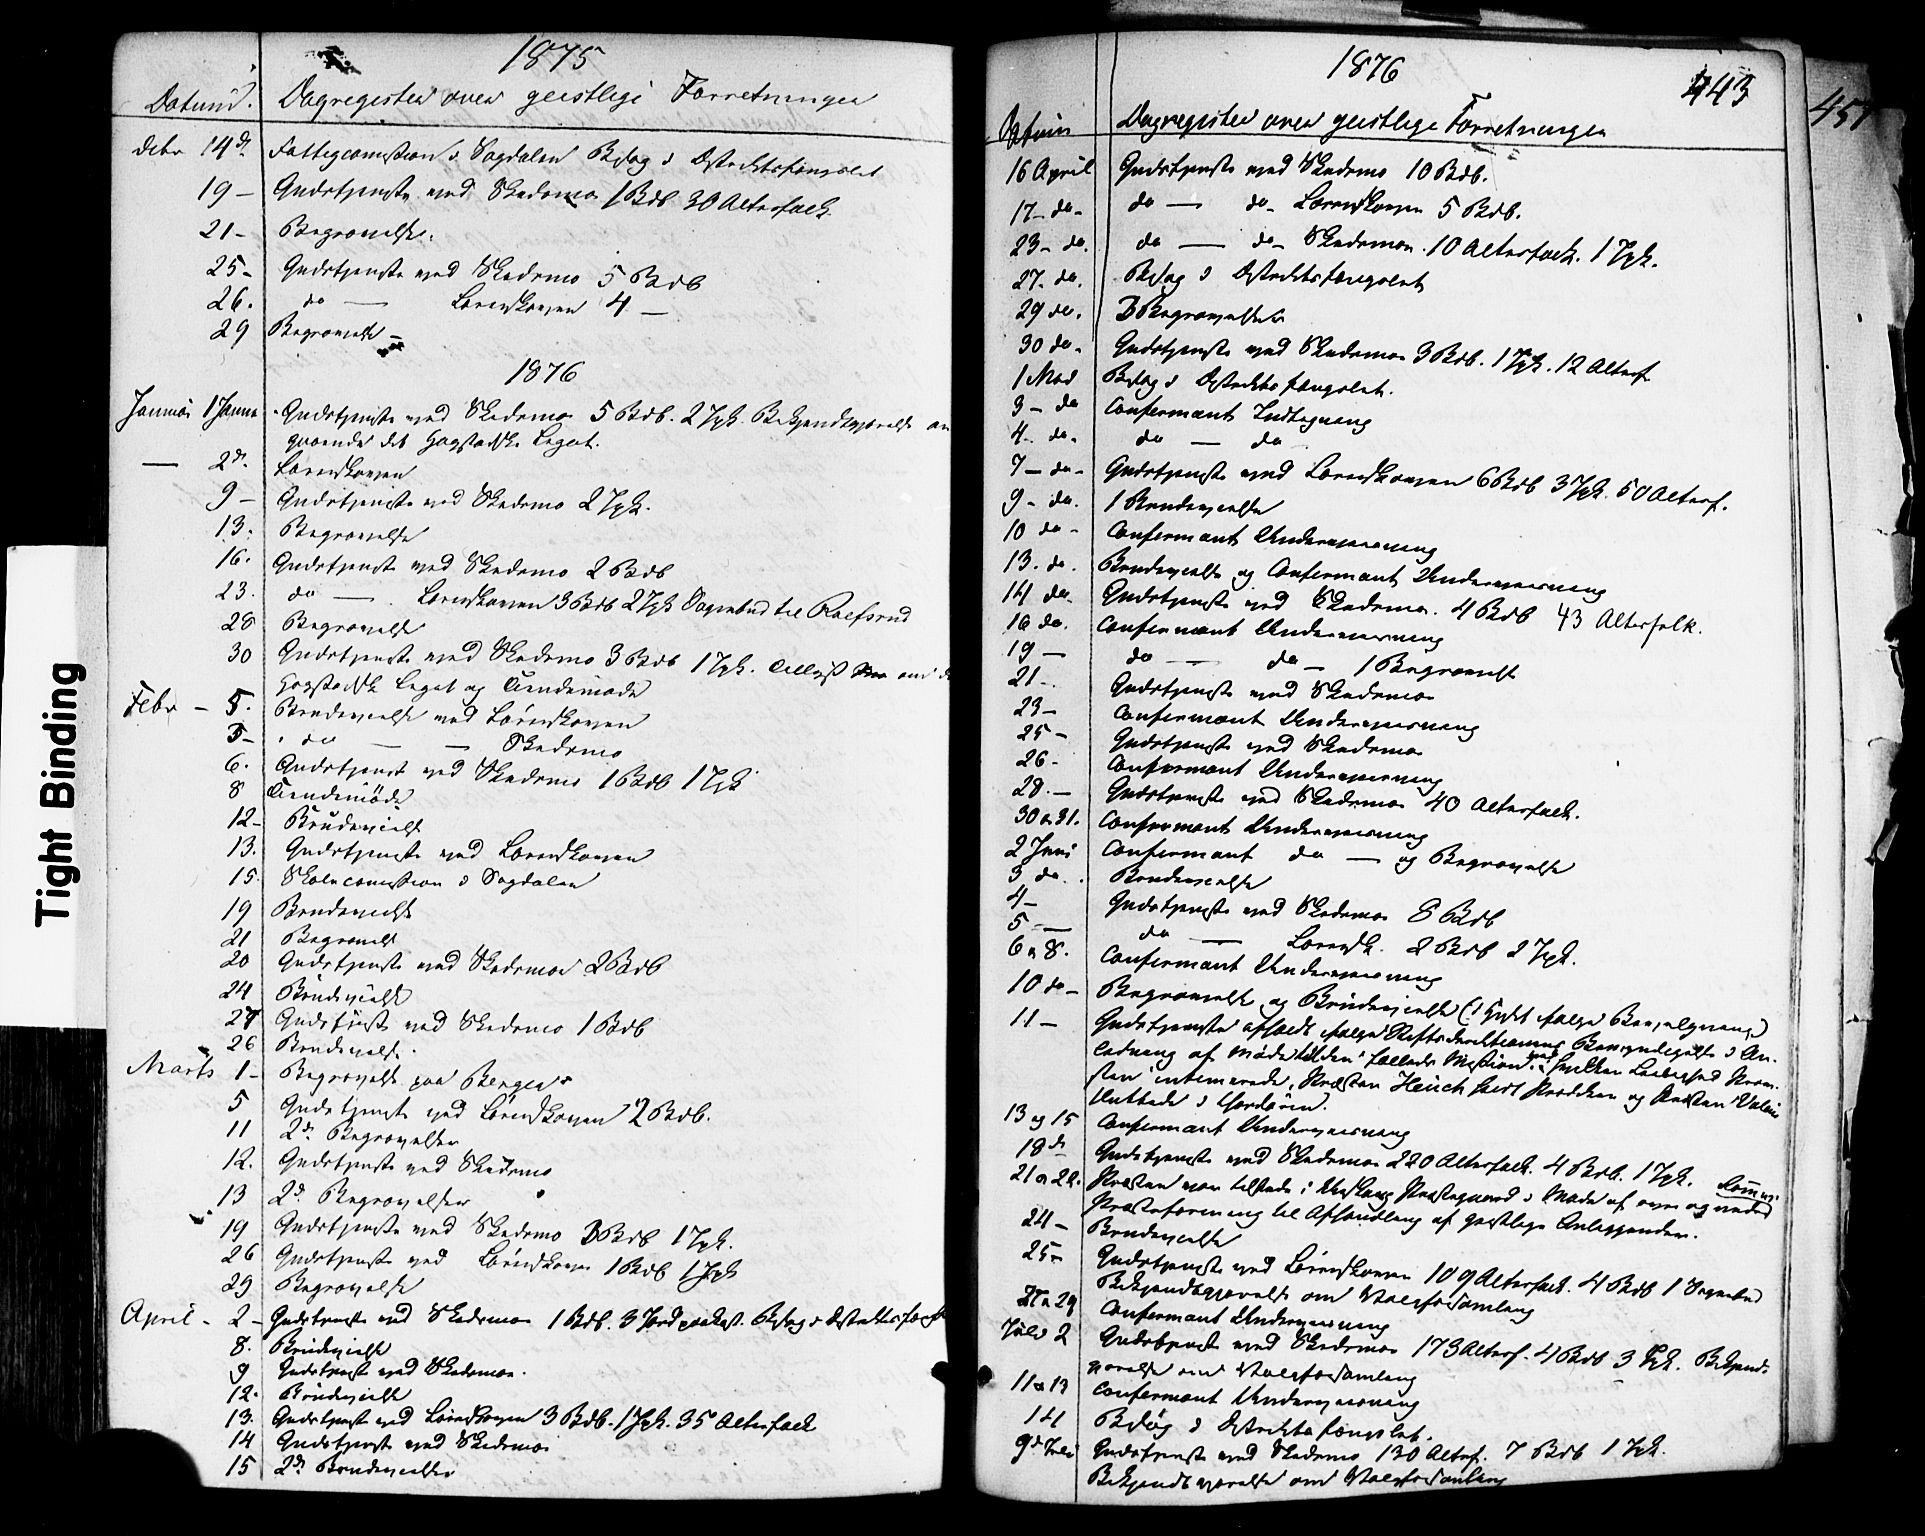 1875
Datum. Dagregister over geistlige Forretninger
Debr 14de Fattigcomission i Sagdalen Besøg i Distriktsfængslet
19 – Gudstjeneste ved Skedsmo 1 Bdb 30 Altersfolk
21 – Begravelse.
25 – Gudstjeneste ved Skedsmo 5 Bdb
26. do — Lørenskogen 4 —
29 Begravelse –
1876
Januar 1 Gudstjeneste ved Skedsmo 5 Bdb. 2 Jpk. Bekjendtgjørelse an
gaaende det Legat.
— 2de. Lørenskogen
9 – Gudstjeneste ved Skedsmo 2 Jpk.
13. Begravelse
16. Gudstjeneste ved Skedsmo 2 Bdb
23. do — Lørenskogen 3 Bdb 2 Jpk Sognebud til
28 Begravelse
30 Gudstjeneste ved Skedsmo 3 Bdb 1 Jpk. om
Legat og Tiendemøde
Febr – 5. Brudevielse ved Lørenskogen
5 – do — — Skedsmo
6. Gudstjeneste ved Skedsmo 1 Bdb 1 Jpk
8 Tiendemøde
12 – Brudevielse
13. Gudstjeneste ved Lørenskogen
15. Skolecomission i Sagdalen
19 Brudevielse
21 Begravelse
20 Gudstjeneste ved Skedsmo 2 Bdb
24 Brudevielse
27 Gudstjeneste ved Skedsmo 1 Bdb
26 Brudevielse.
Marts 1 – Begravelse paa
5 Gudstjeneste ved Lørenskogen 2 Bdb.
11 2de Begravelser
12. Gudstjeneste ved Skedsmo
13 2de Begravelser
19 Gudstjeneste ved Skedsmo 3 Bdb 1 Jpk.
26 Gudstjeneste ved Lørenskogen 1 Bdb 1 Jpk
29 Begravelse
April – 2 – Gudstjeneste ved Skedsmo 1 Bdb. 3 Jordpaakast. Besøg i
8. Brudevielse
9 Gudstjeneste ved Skedsmo.
12. Brudevielse
13. Gudstjeneste ved Lørenskogen 3 Bdb. 1 Jpk. 35 Altersfolk
14 Gudstjeneste ved Skedsmo
15 2de Brudevielser
1876
443
457
Datum Dagregister over geistlige Forretninger
16 April Gudstjeneste ved Skedsmo 10 Bdb.
17 – do – do — do – Lørenskogen 5 Bdb.
23 – do. do — do – Skedsmo. 10 Altersfolk. 1 Jpk.
27. do. Besøg i Distriktsfængslet
29 do. 3 Begravelser
30 do. Gudstjeneste ved Skedsmo 3 Bdb. 1 Jpk. 12 Altersf
1 Mai Besøg i Distrikts fængslet.
3 – do Confirmant Indtegning
4. do. do — do
7 – do – Gudstjeneste ved Lørenskogen 6 Bdb 3 Jpk. 50 Altersf.
9 – do. 1 Brudevielse
10 do – Confirmant Underviisning
13. do. Brudevielse og Confirmant Underviisning
14 do. Gudstjeneste ved Skedsmo. 4 Bdb 43 Altersfolk.
16 do. Confirmant Underviisning
19 — do — do – 1 Begravelse
21 – Gudstjeneste ved Skedsmo
23 – Confirmant Underviisning
25 – Gudstjeneste ved Skedsmo
26 – Confirmant Underviisning
28. — Gudstjeneste ved Skedsmo 40 Altersfolk.
30 a 31. Confirmant Underviisning
2 Juni Confirmant do — og Begravelse
3 do. Brudevielse
4 – Gudstjeneste ved Skedsmo 8 Bdb
5 — do — Lørensk. 2 Bdb 2 Jpk.
6 a 8. Confirmant Underviisning
10 do – Begravelse og Brudevielse
11 – Gudstjeneste afholdt ifølge Stiftsdirektionens Bemyndigelse i An-
ledning af Mødet
Præsten Heuch
13 og 15 Confirmant Underviisning
18de Gudstjeneste ved Skedsmo 220 Altersfolk. 4 Bdb. 1 Jpk.
21 a 22. Præsten var tilstede i Præstegaard i Møde af
Præsteforening til Afhandling af geistlige Anliggender.
24 – Brudevielse
25 – Gudstjeneste ved Lørenskogen 109 Altersfolk. 4 Bdb 1 Sognebud
Bekjendtgjørelse om Valgforsamling
27 a 29 Confirmant Underviisning
Juli 2 Gudstjeneste ved Skedsmo 173 Altersf. 4 Bdb 3 Jpk. Bekjendt-
gjørelse om Valgforsamling
11 a 13 Confirmant Underviisning
14 Besøg i Distrikts fængslet.
9de Juli Gudstjeneste ved Skedsmo 130 Altersf. 7 Bdb 1 Jpk.
Bekjendtgjørelse om Valgforsamling
Tight Binding